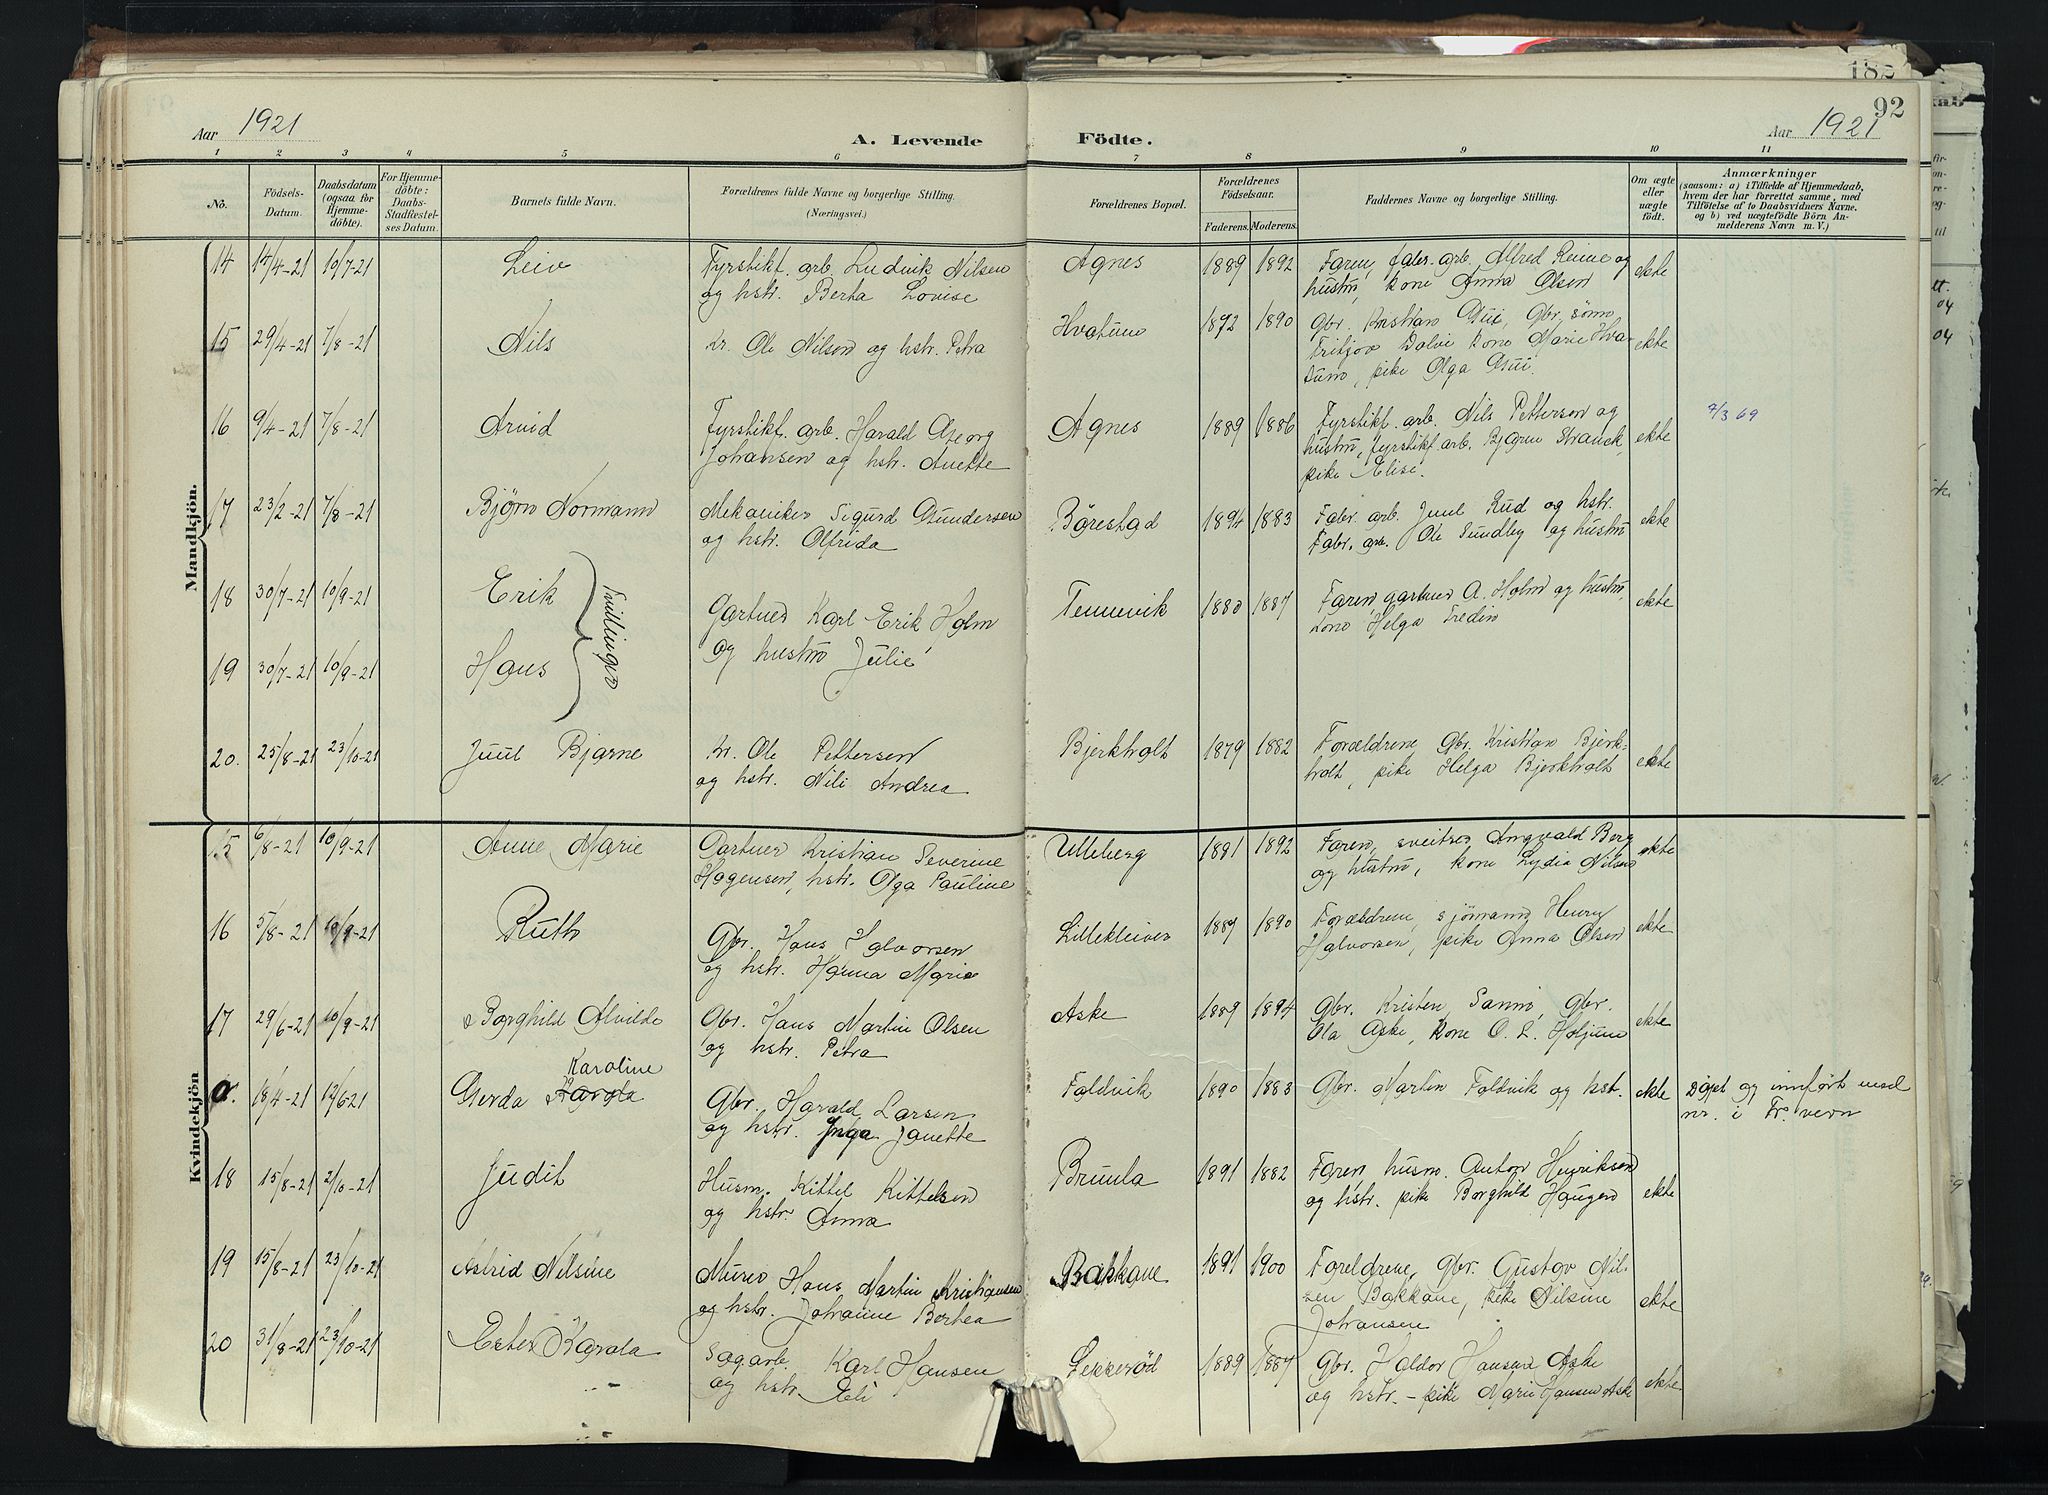 182
92
Aar 1921
A. Levende Födte.
Aar 1921
1 2 3 4 5 6 7 8 9 10 11
No.
Födsels-Datum.
Daabsdatum (ogsaa for Hjemmedöbte).
For Hjemmedöbte: Daabs-Stadfæstelses Datum.
Barnets fulde Navn.
Forældrenes fulde Navne og borgerlige Stilling. (Næringsvei.)
Forældrenes Bopæl.
Forældrenes Födselsaar.
Faderens. Moderens.
Faddernes Navne og borgerlige Stilling.
Om ægte eller uægte födt.
Anmærkninger
(saasom: a) i Tilfælde af Hjemmedaab, hvem der har forrettet samme, med Tilföielse af to Daabsvidners Navne, og b) ved uægtefödte Börn Anmelderens Navn m. V.)
Mandkjön.
14 14/4-21 10/7-21 Leiv Fyrstikf. arb. Ludvik Nilsen Agnes 1889 1892 Faren, fabr. arb. Alfred Reine og ekte
og hstr. Berta Lovise hustru, kone Anna Olsen
15 29/4-21 7/8-21 Nils Gr. Ole Nilsen og hstr. Petra Hvatum 1872 1890 Gbr. Kristian Gui, Gbr. sønn ekte
Fritjov Dalvi kone Marie Hva-
tum, pike Olga Gui.
16 9/4-21 7/8-21 Arvid Fyrstikf. arb. Harald Georg Agnes 1889 1886 Fyrstikf. arb. Nils Pettersen og ekte 7/3 69
Johansen og hstr. Anette hustru, fyrstikf. arb. Bjarne Stranck,
pike Elise.
17 23/2-21 7/8-21 Bjørn Normann Mekaniker Sigurd Gundersen Børestad 1894 1883 Fabr. arb. Juul Rud og hstr. ekte
og hstr. Olfrida Fabr. arb. Ole Sundby og hustru
18 30/7-21 10/9-21 Erik Tvillinger Gartner Karl Erik Holm Tennevik 1880 1887 Faren gartner A. Holm og hustru, ekte
kone Helga Fredin
19 30/7-21 10/9-21 Hans og hustru Julie
20. 25/8-21 23/10-21 Juul Bjarne Gr. Ole Pettersen Bjerkholt 1879 1882 Forældrene, Gbr. Kristian Bjerk- ekte
og hstr. Nili Andrea holt, pike Helga Bjerkholt
Kvindekjön
15 6/8-21 10/9-21 Anne Marie Gartner Kristian Severine Ulleberg 1881 1892 Faren, sveitser Angvald Berg ekte
Hagensen, hstr. Olga Pauline og hustru, kone Lydia Nilsen
16 5/8-21 10/9-21 Ruth Gbr. Hans Halvorsen Lillekleiver 1887 1890 Forældrene, sjømand Henry ekte
og hstr. Hanna Marie Halvorsen, pike Anna Olsen
17 29/6-21 10/9-21 Borghild Alvilde Gbr. Hans Martin Olsen Aske 1889 1894 Gbr. Kristen Sannø, Gbr. ekte
og hstr. Petra Ola Aske, kone O. L. Holjum
Karoline
a. 18/4-21 12/6-21 Gerda Karola Gbr. Harald Larsen Foldvik 1890 1883 Gbr. Martin Foldvik og hstr. ekte Døpt og innført med
og hstr. Inga Janette nr. i Fr. vern
18 15/8-21 2/10-21 Judit Husm. Kittel Kittelsen Brunla 1891 1882 Faren, husm. Anton Henriksen ekte
og hstr. Anna og hstr. pike Borghild Haugen
19 15/8-21 23/10-21 Astrid Nilsine Murer Hans Martin Kristiansen Bakkane 1891 1900 Foreldrene, Gbr. Gustav Nil- ekte
og hstr. Johanne Borhea sen Bakkane, pike Nilsine
Johansen
20 31/8-21 23/10-21 Ester Karola Sagarb. Karl Hansen Lekkerød 1889 1887 Gbr. Haldor Hansen Aske ekte
og hstr. Eli og hstr. - pike Marie Hansen Aske